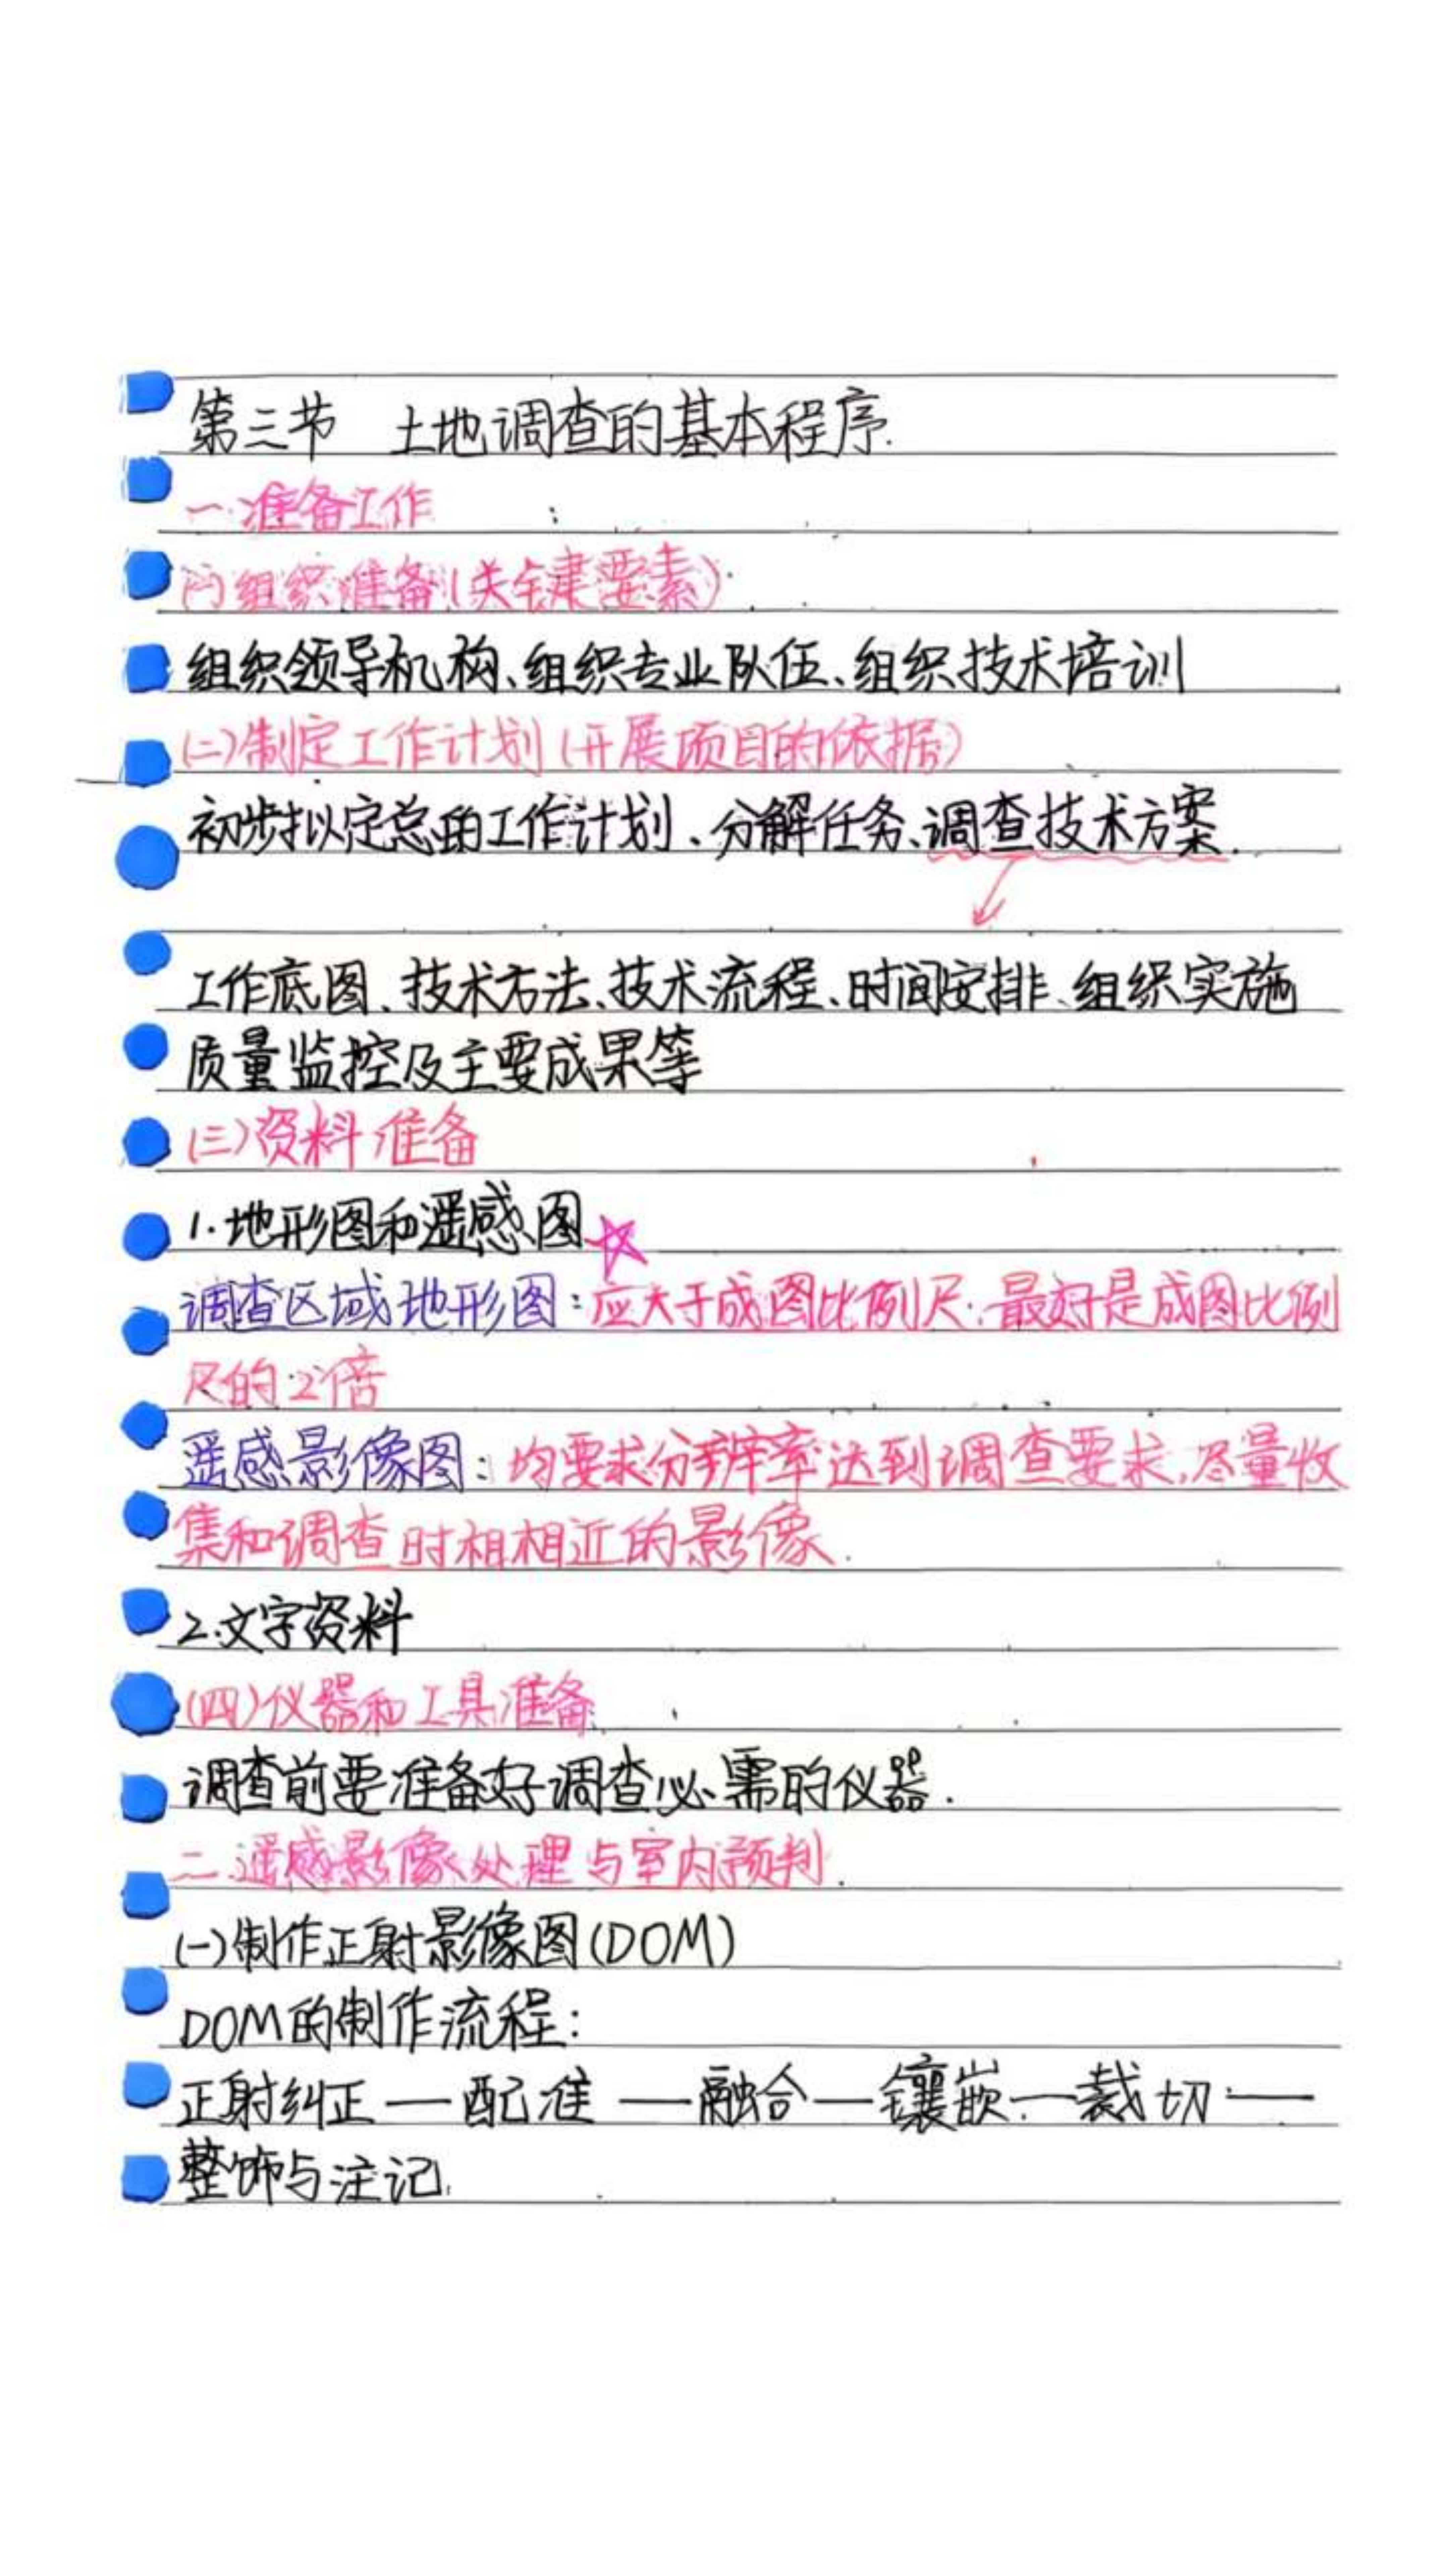 第三节 土地调查的基本程序.
一.准备工作
(一)组织准备(关键要素)
组织领导机构、组织专业队伍、组织技术培训
(二)制定工作计划(开展项目的依据)
初步拟定总的工作计划、分解任务、调查技术方案.
工作底图、技术方法、技术流程、时间安排、组织实施
质量监控及主要成果等
(三)资料准备
1.地形图和遥感图
调查区域地形图:应大于成图比例尺.最好是成图比例
尺的2倍
遥感影像图:均要求分辨率达到调查要求,尽量收
集和调查时相相近的影像.
2.文字资料
(四)仪器和工具准备
调查前要准备好调查必需的仪器.
二.遥感影像处理与室内预判.
(一)制作正射影像图(DOM)
DOM的制作流程:
正射纠正—配准—融合—镶嵌—裁切—
整饰与注记.